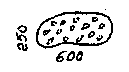 250
600